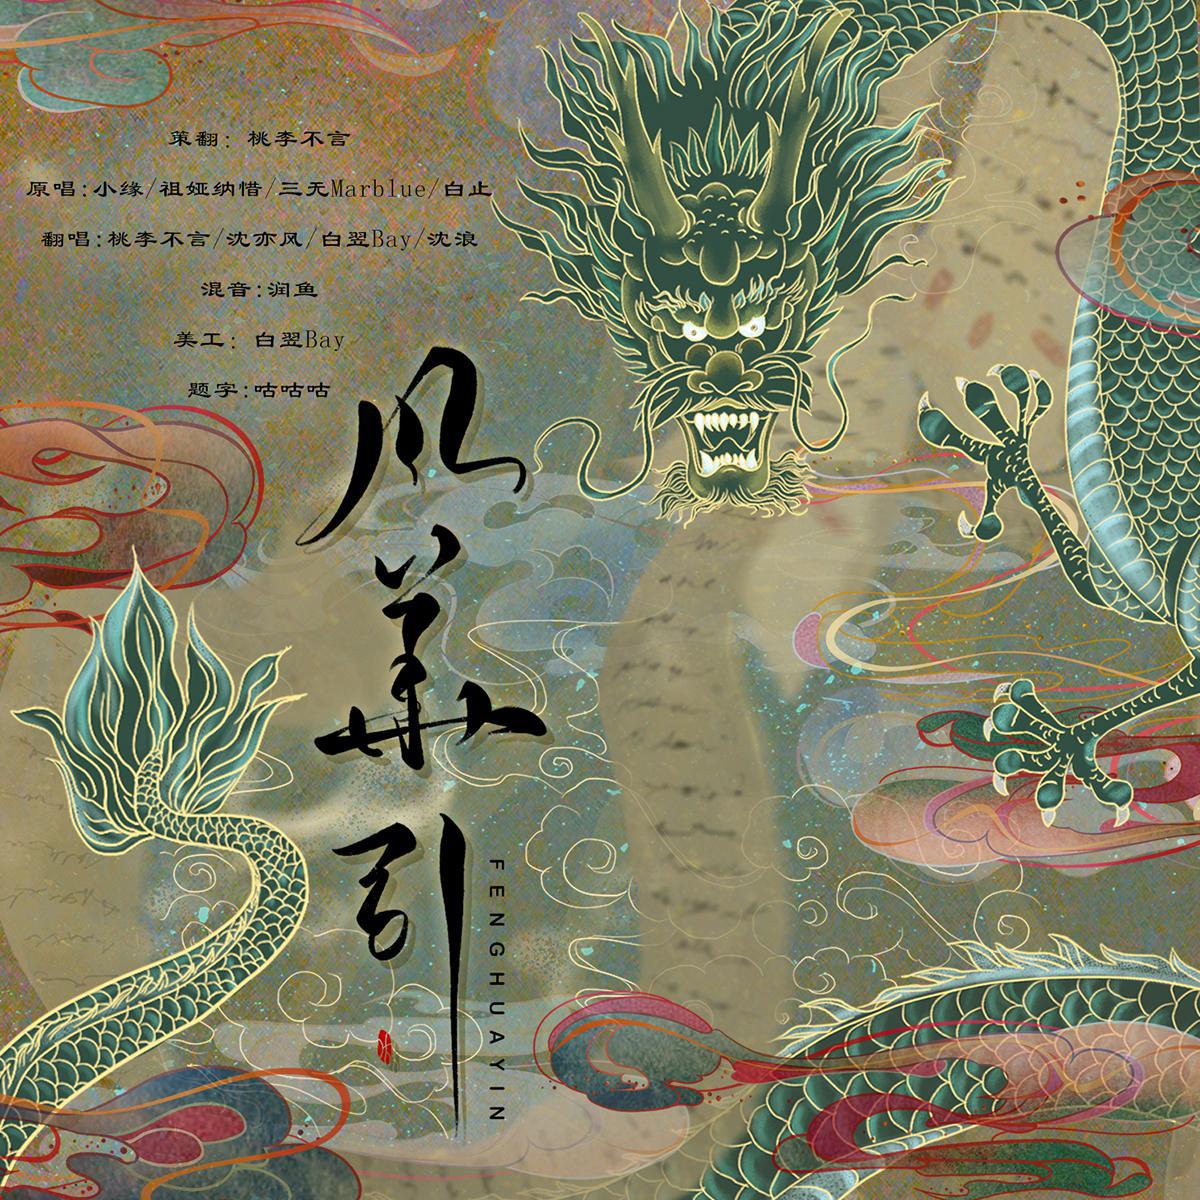 策翻：桃李不言
原唱:小缘/祖娅纳惜/三无Marblue/白止
翻唱:桃李不言/沈亦风/白翌Bay/沈浪
混音:润鱼
美工：白翌Bay
题字:咕咕咕
风华引
FENGHUAYIN